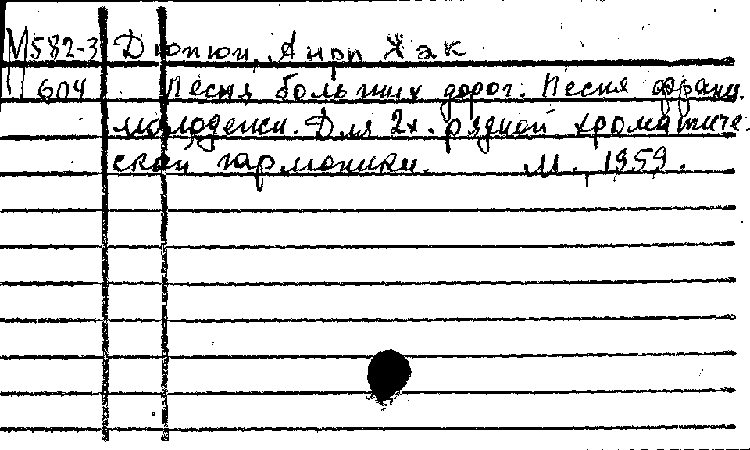 М582-3 Дюпюи, Анри Жак
604 Песня больших дорог. Песня франц.
молодежи. Для 2х. рядной хроматиче-
ской гармоники. М., 1959.